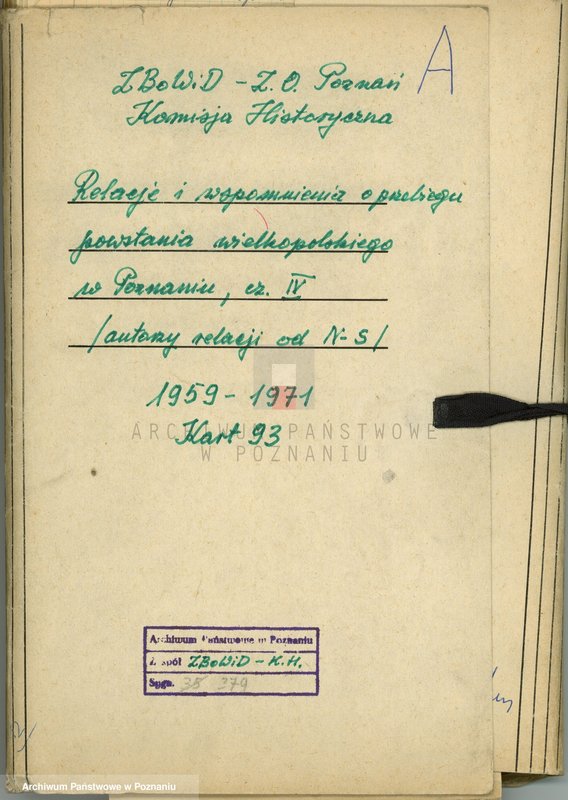 A
ZBoWiD - Z.O. Poznań
Komisja Historyczna
Relacje i wspomnienia o przebiegu
powstania wielkopolskiego
w Poznaniu, cz. IV
/autorzy relacji od N-S/
1959 - 1971
Kart 93
ARCHIWUM PAŃSTWOWE
W POZNANIU
Archiwum Państwowe w Poznaniu
Zespół ZBoWiD - K.H.
Sygn. 35 379
Archiwum Państwowe w Poznaniu